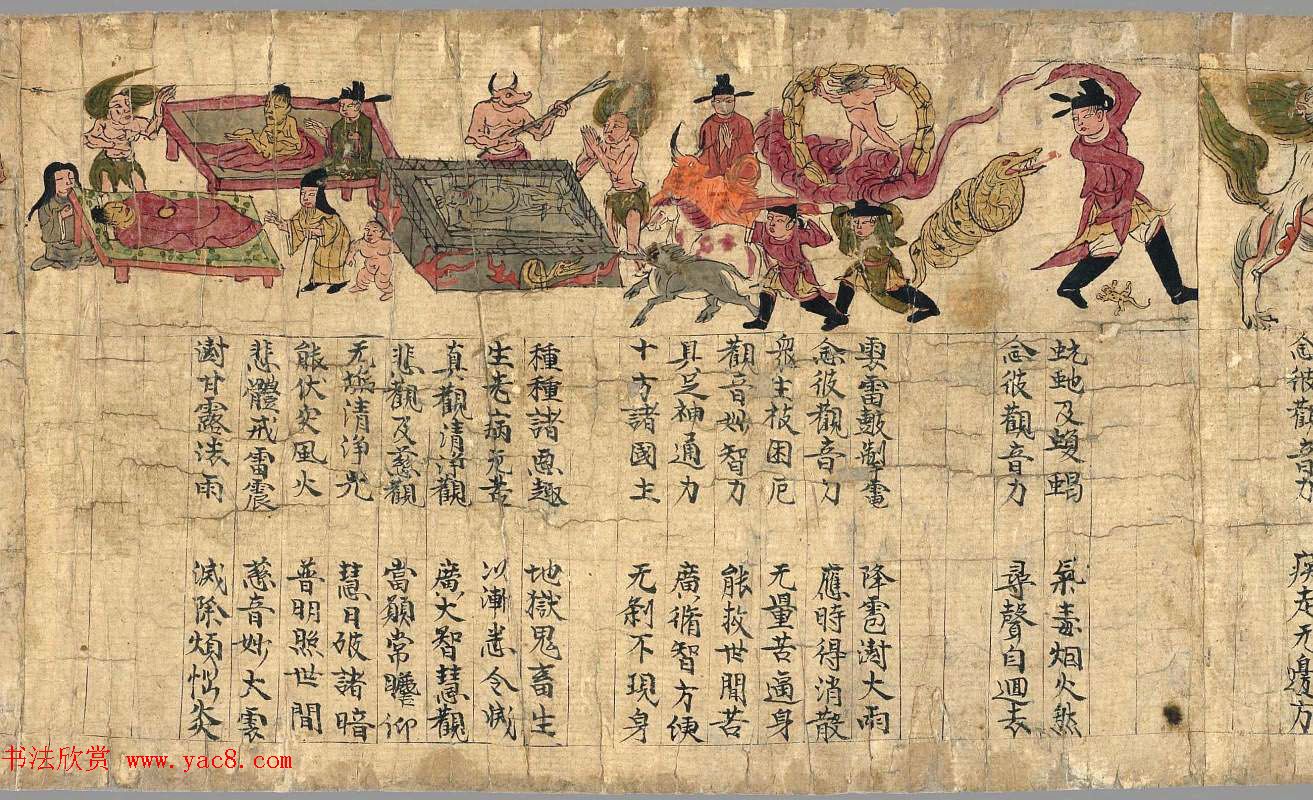 念彼觀音力　疾走无邊方
蚖虵及蝮蝎　氣毒烟火然
念彼觀音力　尋聲自迴去
雲雷皷掣電　降雹澍大雨
念彼觀音力　應時得消散
衆生被困厄　无量苦逼身
觀音妙智力　能救世間苦
具足神通力　廣脩智方便
十方諸國土　无剎不現身
種種諸惡趣　地獄鬼畜生
生老病死苦　以漸悉令滅
真觀清淨觀　廣大智慧觀
悲觀及慈觀　當願常瞻仰
无垢清淨光　慧日破諸暗
能伏灾風火　普明照世間
悲體戒雷震　慈音妙大雲
澍甘露法雨　滅除煩惱炎
书法欣赏 www.yac8.com